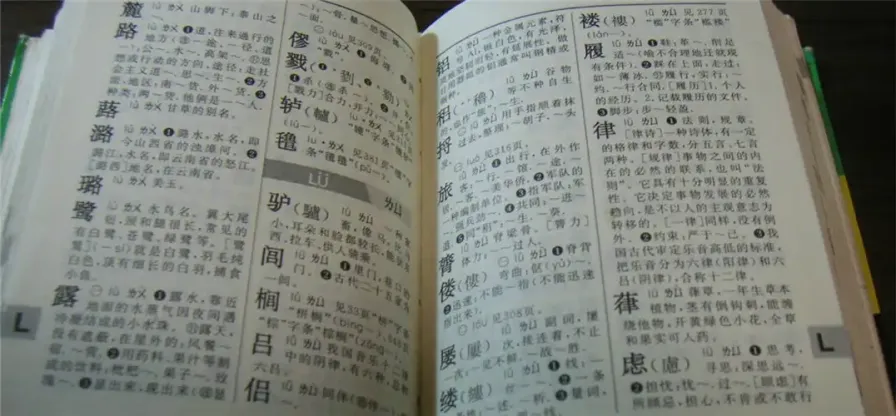 麓 lù ㄌㄨˋ 山脚下:泰山之
路 lù ㄌㄨˋ ❶道,往来通行的
地方(㊣—途、—径、道
—):公~、水~、高架~。❷思
想或行动的方向、途径:走社
会主义道~、思~、生~。❸方
面,地区:南~货、外~货。❹
种类:两~货、他俩是一~人。
蕗 lù ㄌㄨˋ 甘草的别名。
潞 lù ㄌㄨˋ ❶潞水,水名,即
今山西省的浊漳河。❷
潞江,水名,即云南省的怒江。
[潞西]地名,在云南省。
璐 lù ㄌㄨˋ 美玉。
鹭 lù ㄌㄨˋ 水鸟名。翼大尾
短,颈和腿很长,常见的
有白鹭、苍鹭、绿鹭等。[鹭
鸶](-sī)就是白鹭,羽毛纯
白色,顶有细长的白羽,捕食
小鱼。
露 ㊀ lù ㄌㄨˋ ❶露水,靠近
地面的水蒸气因夜间遇
冷凝结成的小水珠。㊣露天,
没有遮蔽,在屋外的:风餐~
宿、~营。❷用药料、果汁等制
成的饮料:枇杷~、果子~、玫
瑰~。❸显出来,现出来
L
僇 lù ㄌㄨˋ ❶侮辱。❷
戮
轳(轤)
氇
LÜ ㄌㄩ
驴(驢) lǘ ㄌㄩˊ
畜,像马,比马
小,耳朵和脸都较长,能驮东
西、拉车、供人骑乘。
闾 lǘ ㄌㄩˊ ❶里门,巷口的
门。❷古代二十五家为
一闾。
榈 lǘ ㄌㄩˊ 见33页“栟”字条
“栟榈”(bīng-)、
“棕”字条“棕榈”(zōng-)。
吕 lǚ ㄌㄩˇ 我国音乐十二律
中的阴律,有六种,总称
六吕。
侣 lǚ ㄌㄩˇ 同伴
铝 lǚ ㄌㄩˇ 一种金属元素,符
号Al,银白色,有光泽,
稆(穭) lǚ ㄌㄩˇ 谷物
等不种自生
捋 ㊀ lǚ ㄌㄩˇ 用手指顺着抹
过去,整理:~胡子、~头
旅 lǚ ㄌㄩˇ ❶出行,在外作
客:~行、~馆、~途、~
美华侨。❷军队的
一种编制单位。❸指军队:军
~、强兵劲~。❹共同:~进~
退。
膂 lǚ ㄌㄩˇ 脊梁骨。[膂力]
体力:~过人。
偻(僂) ㊀ lǚ ㄌㄩˇ ❶脊背
弯曲:伛(yǔ)~。
❷迅速:不能~指(不能迅速
指出来)。
屡(屢) lǚ ㄌㄩˇ 副词,屡
次,接连着,不止
一次:~见不鲜、~战~胜。
缕(縷) lǚ ㄌㄩˇ ❶线
褛(褸)
“褴”字条“褴褛”
(lán-)。
履 lǚ ㄌㄩˇ ❶鞋:革~、削足
适~(喻不合理地迁就现
有条件)。❷踩在上面,走过:
如~薄冰。㊣履行,实行:~
约、~行合同。[履历]1.个人
的经历。2.记载履历的文件。
❸脚步:步~轻盈。
律 lǜ ㄌㄩˋ ❶法则,规章。
[律诗]一种诗体,有一定
的格律和字数,分五言、七言
两种。[规律]事物之间的内
在的必然的联系,也叫“法
则”。它具有十分明显的重复
性。它决定事物发展的必然
趋向,是不以人的主观意志为
转移的。[一律]同样,没有例
外。❷约束:严于~己。❸我
国古代审定乐音高低的标准,
把乐音分为六律(阳律)和六
吕(阴律),合称十二律。
葎 lǜ ㄌㄩˋ 葎草,一年生草本
植物,茎有倒钩刺,能缠
绕他物,开黄绿色小花,全草
和果实可入药。
虑(慮) lǜ ㄌㄩˋ ❶思考,
寻思:深思远~。
❷担忧:忧~、过~。[顾虑]有
所顾忌,担心,不肯或不敢行
L